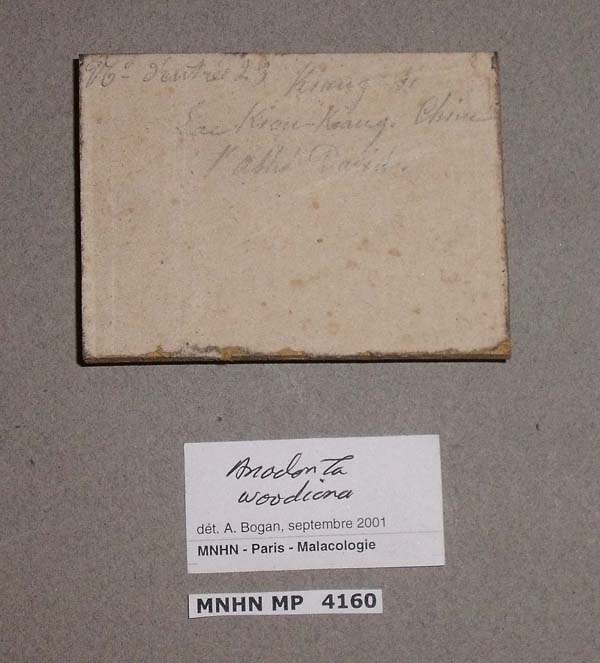 N° d'entrée 23 Kiang-si
Lac Kiou-Kiang. Chine
l'abbé David.
Anodonta
woodiana
dét. A. Bogan, septembre 2001
MNHN - Paris - Malacologie
MNHN MP 4160